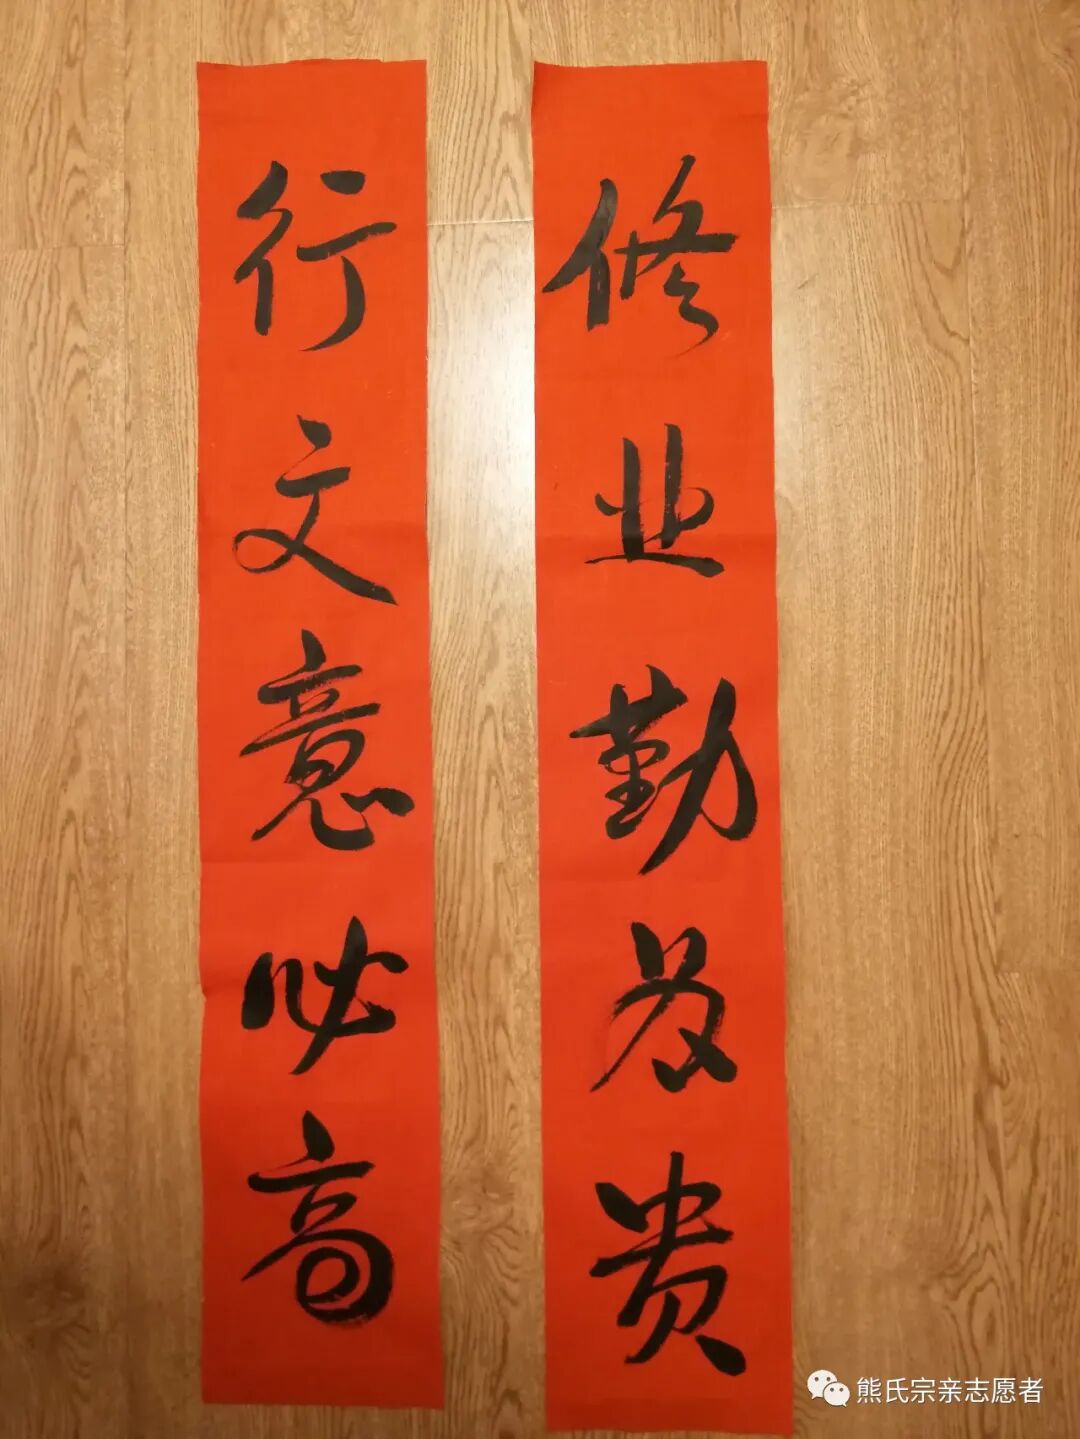 修业勤为贵
行文意必高
熊氏宗亲志愿者